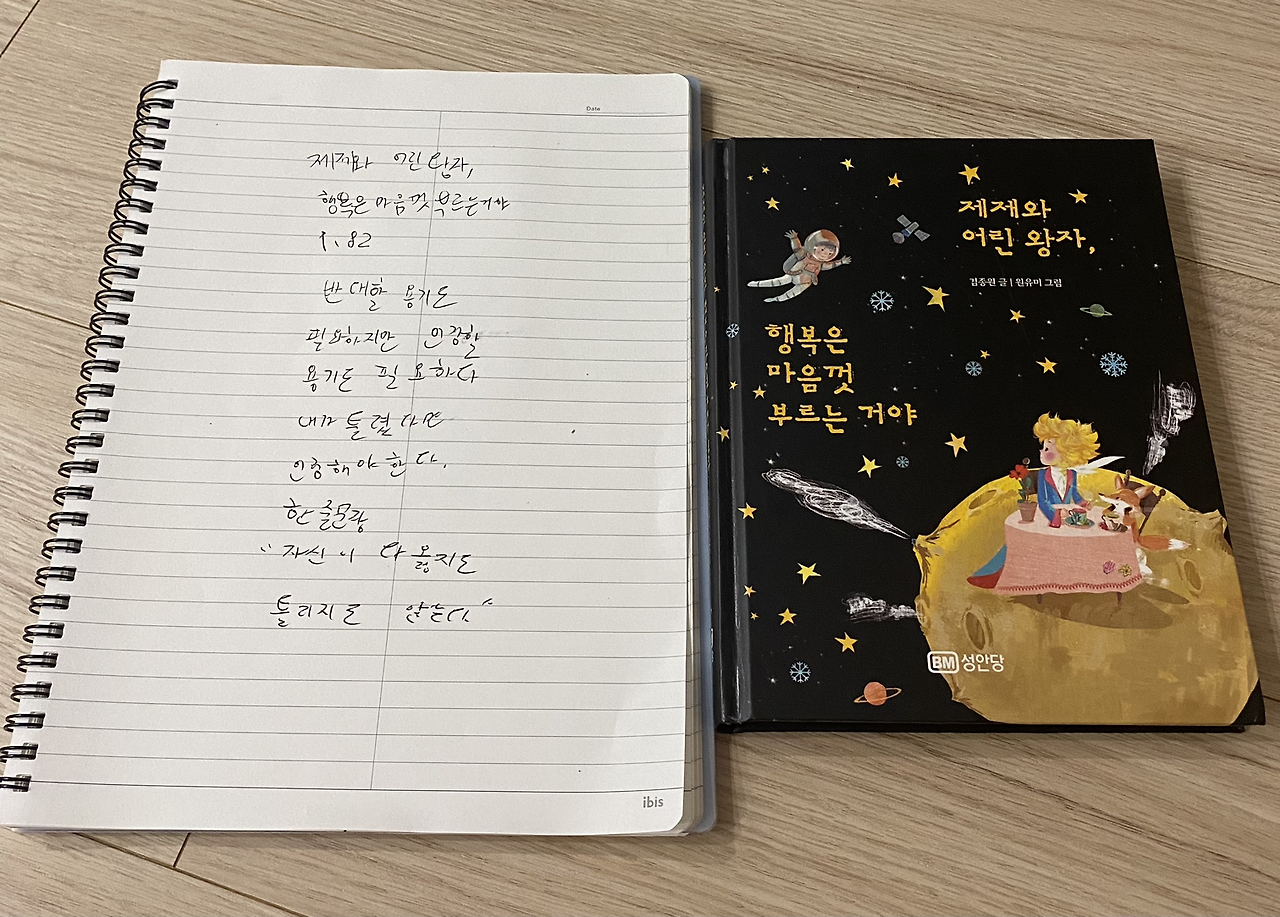 Date
제제와 어린왕자,
행복은 마음껏 부르는거야
P. 82
반대할 용기도
필요하지만 인정할
용기도 필요하다
내가 틀렸다면
인정해야 한다.
한 줄문장
"자신이 다 옳지도
틀리지도 않는다."
ibis
제제와
어린 왕자,
김종원 글 | 원유미 그림
행복은
마음껏
부르는 거야
BM 성안당